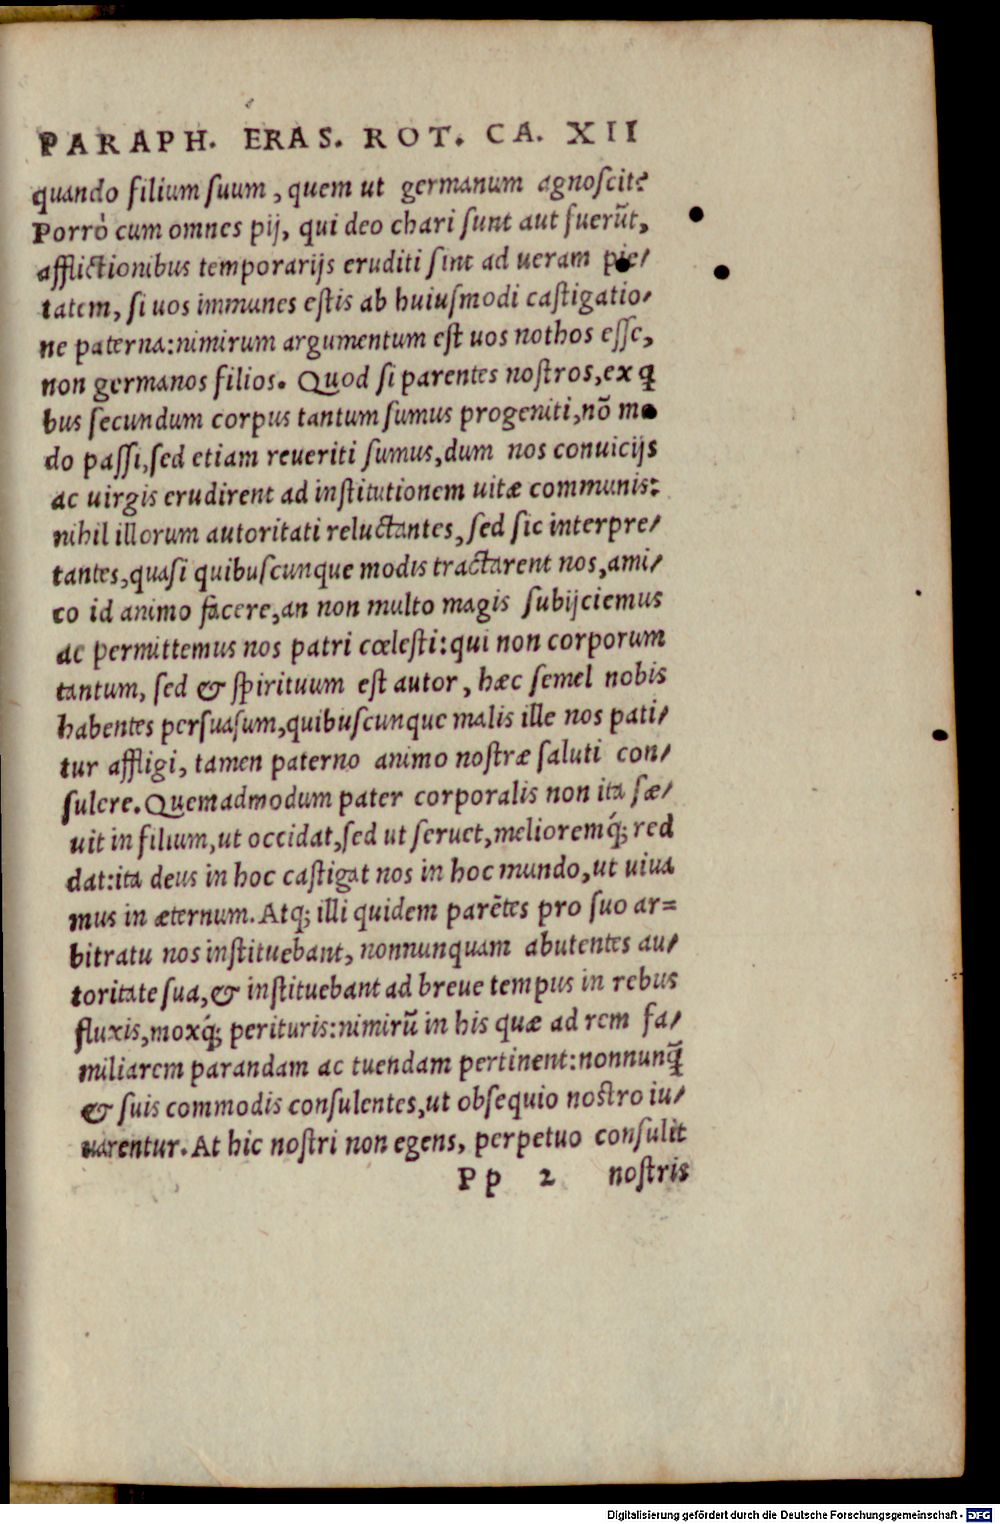 PARAPH. ERAS. ROT. CA. XII
quando filium suum, quem ut germanum agnoscit?
Porrò cum omnes pij, qui deo chari sunt aut fuerūt,
afflictionibus temporarijs eruditi sint ad ueram pie/
tatem, si uos immunes estis ab huiusmodi castigatio/
ne paterna: nimirum argumentum est uos nothos esse,
non germanos filios. Quod si parentes nostros, ex q̃
bus secundum corpus tantum sumus progeniti, nō mo
do passi, sed etiam reueriti sumus, dum nos conuicijs
ac uirgis erudirent ad institutionem uitæ communis:
nihil illorum autoritati reluctantes, sed sic interpre/
tantes, quasi quibuscunque modis tractarent nos, ami/
co id animo facere, an non multo magis subijciemus
ac permittemus nos patri cœlesti: qui non corporum
tantum, sed & spirituum est autor, hæc semel nobis
habentes persuasum, quibuscunque malis ille nos pati/
tur affligi, tamen paterno animo nostræ saluti con/
sulere. Quemadmodum pater corporalis non ita sæ/
uit in filium, ut occidat, sed ut seruet, melioremq́; red
dat: ita deus in hoc castigat nos in hoc mundo, ut uiua
mus in æternum. Atq; illi quidem parētes pro suo ar=
bitratu nos instituebant, nonnunquam abutentes au/
toritate sua, & instituebant ad breue tempus in rebus
fluxis, moxq́; perituris: nimirū in his quæ ad rem fa/
miliarem parandam ac tuendam pertinent: nonnunq̃
& suis commodis consulentes, ut obsequio nostro iu/
uarentur. At hic nostri non egens, perpetuo consulit
Pp 2 nostris
Digitalisierung gefördert durch die Deutsche Forschungsgemeinschaft - DFG